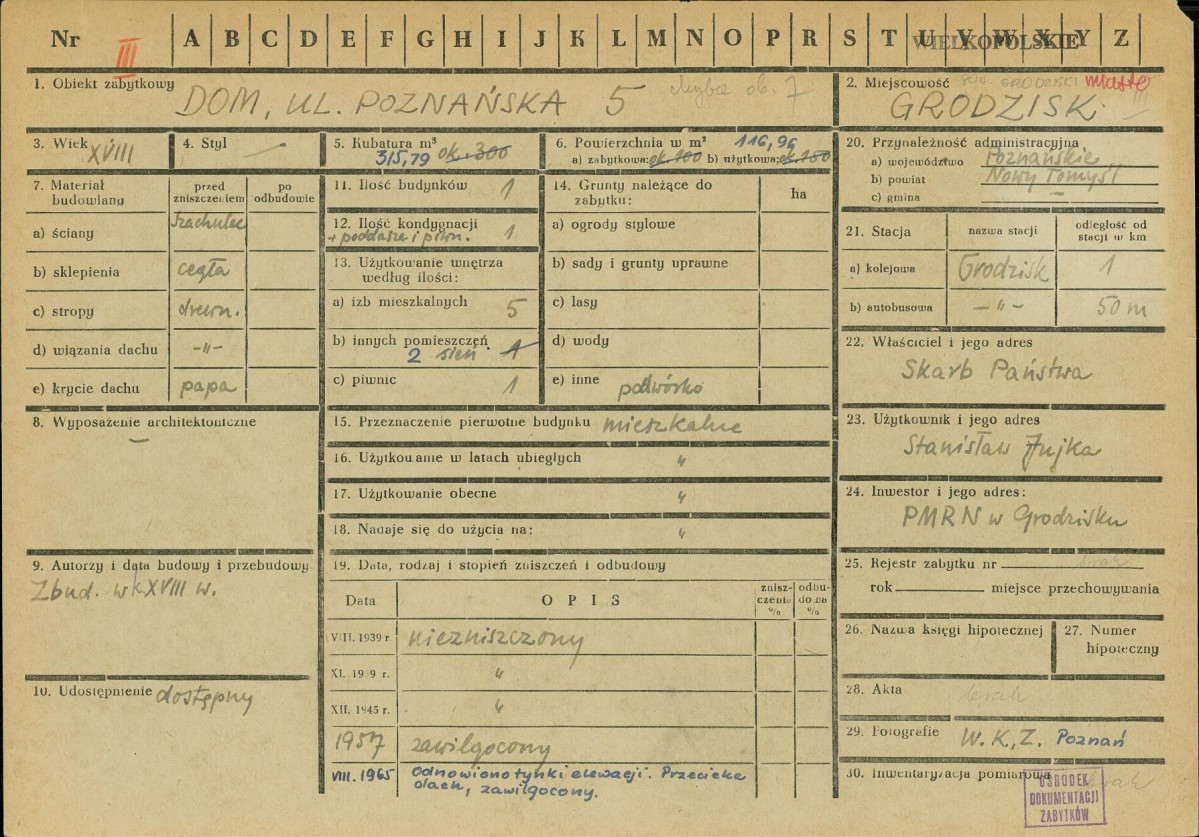 Nr III A B C D E F G H I J K L M N O P R S T U V W X Y Z
WIELKOPOLSKIE
1. Obiekt zabytkowy
DOM, UL. POZNAŃSKA 5 chyba ob. 7
2. Miejscowość pow. GRODZISKI miasto
III
GRODZISK
3. Wiek XVIII
4. Styl —
5. Kubatura m³
315,79 ok. 300
6. Powierzchnia w m² 116,96
a) zabytkowa: ok. 100 b) użytkowa: ok. 150
7. Materiał budowlany
przed zniszczeniem
po odbudowie
a) ściany szachulec
b) sklepienia cegła
c) stropy drewn.
d) wiązania dachu —"—
e) krycie dachu papa
8. Wyposażenie architektoniczne
—
9. Autorzy i data budowy i przebudowy
Zbud. w k. XVIII w.
10. Udostępnienie dostępny
11. Ilość budynków 1
12. Ilość kondygnacji
+ poddasze i piwn. 1
13. Użytkowanie wnętrza
według ilości:
a) izb mieszkalnych 5
b) innych pomieszczeń
2 sień 1
c) piwnic 1
14. Grunty należące do
zabytku:
ha
a) ogrody stylowe
b) sady i grunty uprawne
c) lasy
d) wody
e) inne podwórko
15. Przeznaczenie pierwotne budynku mieszkalne
16. Użytkowanie w latach ubiegłych "
17. Użytkowanie obecne "
18. Nadaje się do użycia na: "
19. Data, rodzaj i stopień zniszczeń i odbudowy
Data
OPIS
zniszczenia %
odbudowa %
VIII. 1939 r. niezniszczony
XI. 1939 r. "
XII. 1945 r. "
1957 zawilgocony
VIII. 1965 Odnowiono tynki elewacji. Przecieka
dach, zawilgocony.
20. Przynależność administracyjna
a) województwo Poznańskie
b) powiat Nowy Tomyśl
c) gmina —
21. Stacja
nazwa stacji
odległość od
stacji w km
a) kolejowa Grodzisk 1
b) autobusowa —"— 50 m
22. Właściciel i jego adres
Skarb Państwa
23. Użytkownik i jego adres
Stanisław Jujka
24. Inwestor i jego adres:
PMRN w Grodzisku
25. Rejestr zabytku nr brak
rok miejsce przechowywania
26. Nazwa księgi hipotecznej
27. Numer
hipoteczny
28. Akta brak
29. Fotografie W.K.Z. Poznań
30. Inwentaryzacja pomiarowa
brak
OŚRODEK
DOKUMENTACJI
ZABYTKÓW